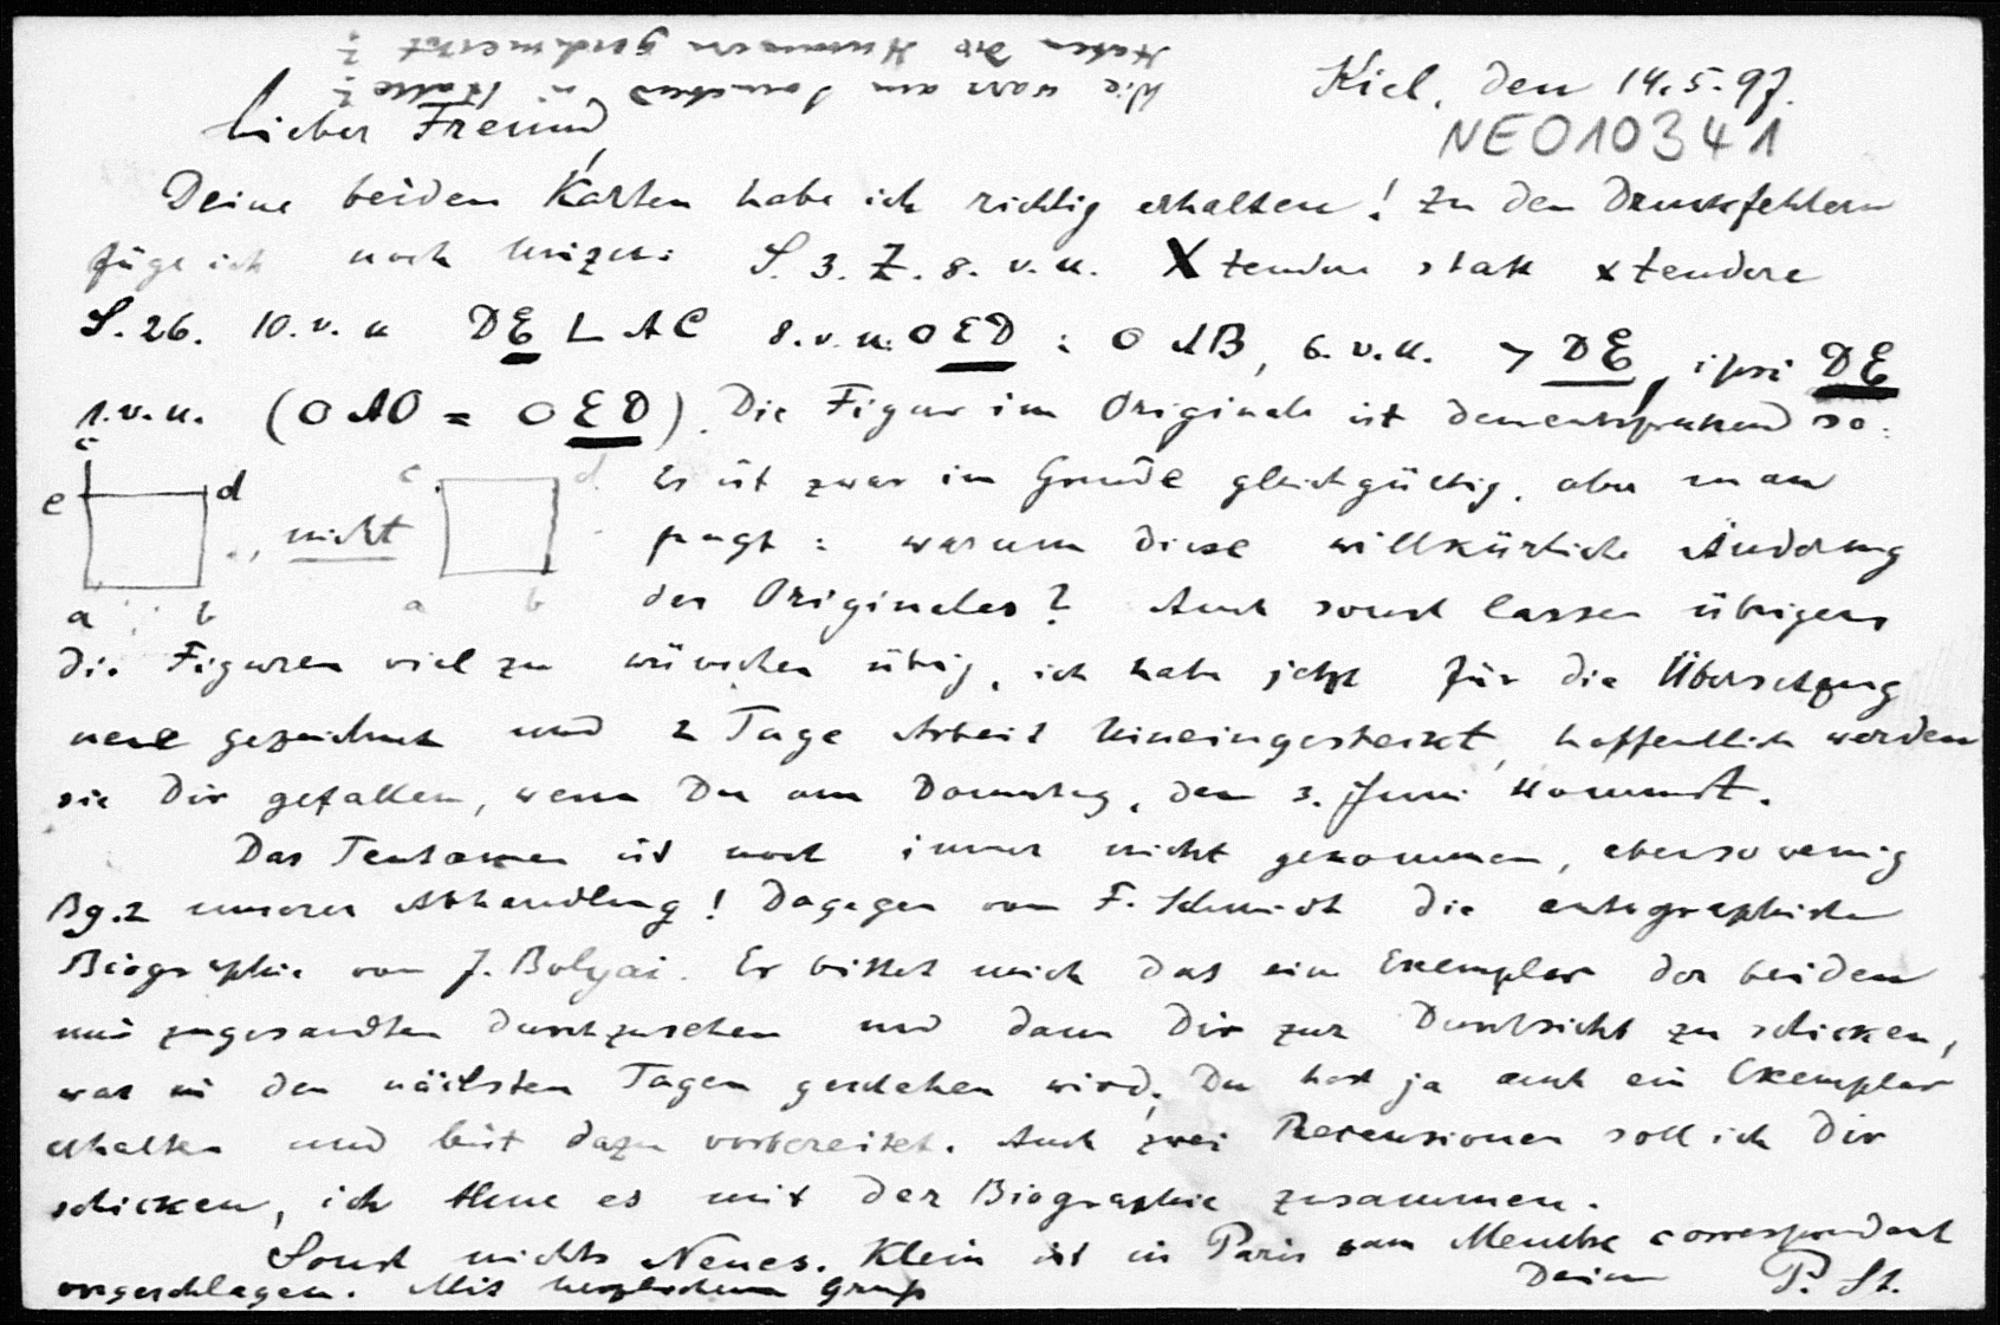 Wie war am Sonntag in Halle?
Haben die Nummern geschmeckt?
Kiel, den 14.5.97.
NE010341
Lieber Freund,
Deine beiden Karten habe ich richtig erhalten! Zu den Druckfehlern
füge ich noch hinzu: S. 3. Z. 8. v. u. Xtendere statt xtendere
S. 26. 10. v. u DE ⊥ AC 8. v. u. O ED : O AB, 6. v. u. > DE, ipsi DE
1. v. u. (O AO = O ED). Die Figur im Originale ist dementsprechend so:
c
e d
c d
nicht
a b
a b
Es ist zwar im Grunde gleichgültig, aber man
fragt: warum diese willkürliche Änderung
des Originales? Auch sonst lassen übrigens
die Figuren viel zu wünschen übrig, ich habe jetzt für die Übersetzung
neue gezeichnet und 2 Tage Arbeit hineingesteckt, hoffentlich werden
sie Dir gefallen, wenn Du am Donnerstag, den 3. Juni kommst.
Das Tentamen ist noch immer nicht gekommen, ebensowenig
Bg. 2 unserer Abhandlung! Dagegen von F. Schmidt die autographirte
Biographie von J. Bolyai. Er bittet mich das ein Exemplar der beiden
mir zugesandten durchzusehen und dann Dir zur Durchsicht zu schicken,
was in den nächsten Tagen geschehen wird. Du hast ja auch ein Exemplar
erhalten und bist dazu vorbereitet. Auch zwei Recensionen soll ich Dir
schicken, ich thue es mit der Biographie zusammen.
Sonst nichts Neues. Klein ist in Paris zum Membre correspondant
vorgeschlagen. Mit herzlichem Gruß
Dein P. St.